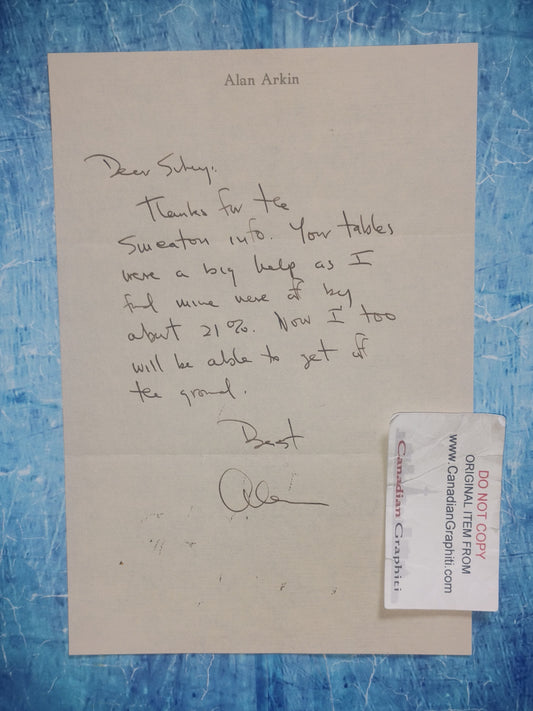 Alan Arkin
Dear
Thanks for the
Sweaton info. Your tables
were a big help as I
find mine were off by
about 21%. Now I too
will be able to get off
the ground.
Best
Alan
DO NOT COPY
ORIGINAL ITEM FROM
www.CanadianGraphiti.com
Canadian Graphiti